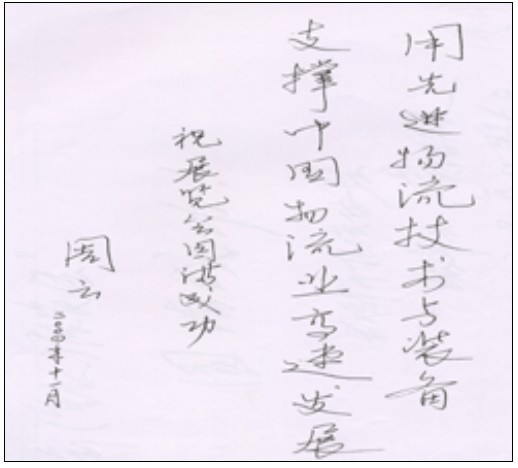 用先进物流技术与装备
支撑中国物流业高速发展
祝展览会圆满成功
周云
二〇〇四年十一月